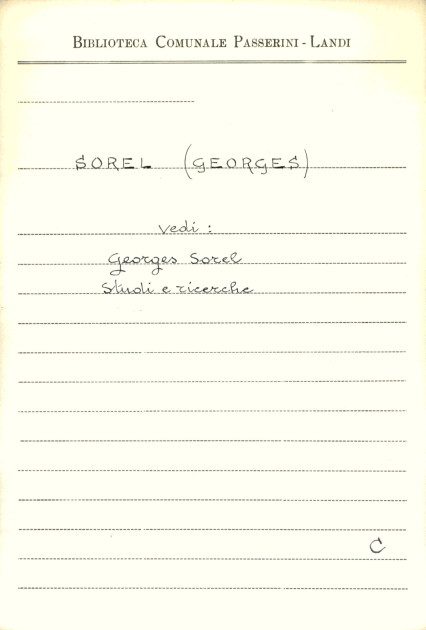 BIBLIOTECA COMUNALE PASSERINI - LANDI
SOREL (GEORGES)
vedi :
Georges Sorel
Studi e ricerche
C